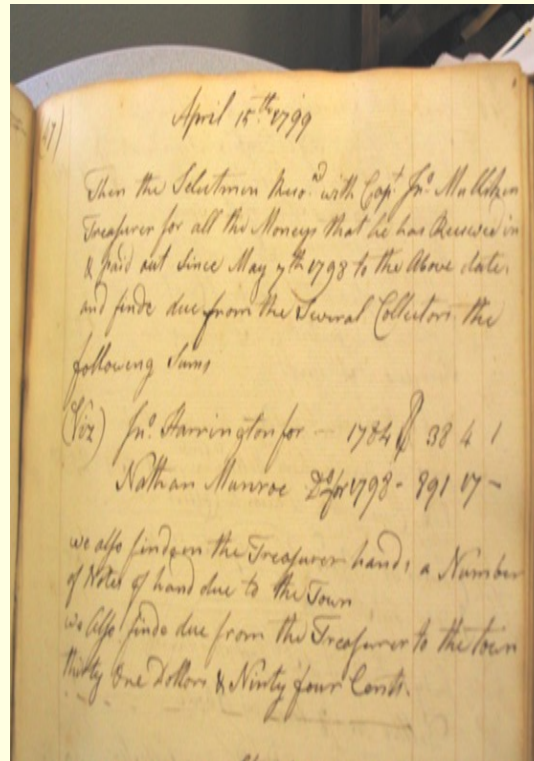 (17)
April 15th 1799
Then the Selectmen Reco.d with Capt Jno Mullikan
Treasurer for all the Moneys that he has Receeved in
& paid out Since May 7th 1798 to the Above date,
and finde due from the Several Collectors the
following Sums
(Viz) Jno Harrington for — 1784 38 4 1
Nathan Munroe Do for 1798 - 891 17 -
we also finde in the Treasurer hands a Number
of Notes of hand due to the Town
we Also finde due from the Treasurer to the town
thirty One Dollors & Ninty four Cents.